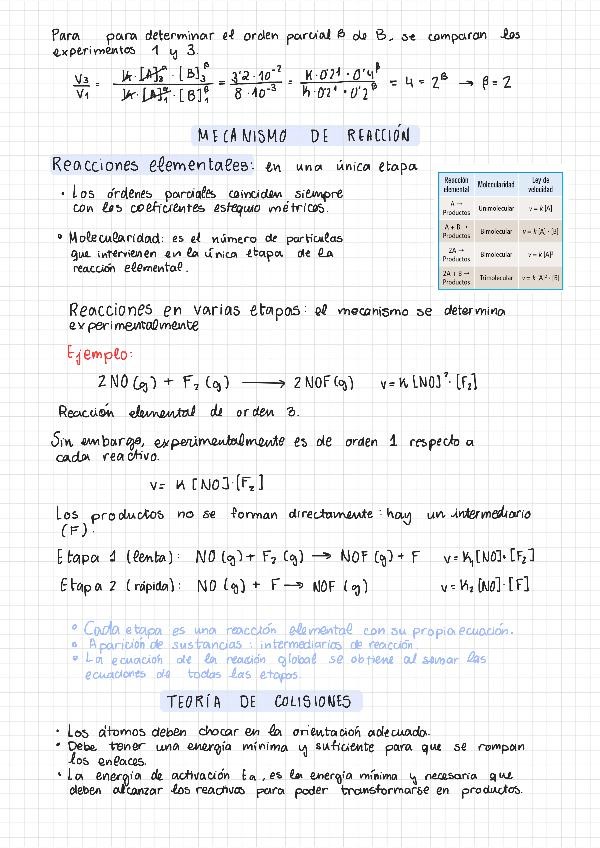 Para para determinar el orden parcial β de B, se comparan los
experimentos 1 y 3.
V₃/V₁ = K·[A]₃^α·[B]₃^β / K·[A]₁^α·[B]₁^β = 3'2·10⁻² / 8·10⁻³ = K·0'2¹·0'4^β / K·0'2¹·0'2^β = 4 = 2^β → β = 2
MECANISMO DE REACCIÓN
Reacciones elementales: en una única etapa
• Los órdenes parciales coinciden siempre
con los coeficientes estequiométricos.
• Molecularidad: es el número de partículas
que intervienen en la única etapa de la
reacción elemental.
Reacción elemental Molecularidad Ley de velocidad
A → Productos Unimolecular v = k [A]
A + B → Productos Bimolecular v = k [A] · [B]
2A → Productos Bimolecular v = k [A]²
2A + B → Productos Trimolecular v = k [A]² · [B]
Reacciones en varias etapas: el mecanismo se determina
experimentalmente
Ejemplo:
2NO(g) + F₂(g) → 2NOF(g) v=K[NO]²·[F₂]
Reacción elemental de orden 3.
Sin embargo, experimentalmente es de orden 1 respecto a
cada reactivo.
v= K [NO]·[F₂]
Los productos no se forman directamente: hay un intermediario
(F).
Etapa 1 (lenta): NO(g) + F₂(g) → NOF(g) + F v=K₁[NO]·[F₂]
Etapa 2 (rápida): NO(g) + F → NOF(g) v=K₂[NO]·[F]
• Cada etapa es una reacción elemental con su propia ecuación.
• Aparición de sustancias: intermediarios de reacción.
• La ecuación de la reacción global se obtiene al sumar las
ecuaciones de todas las etapas
TEORÍA DE COLISIONES
• Los átomos deben chocar en la orientación adecuada.
• Debe tener una energía mínima y suficiente para que se rompan
los enlaces.
• La energía de activación Ea, es la energía mínima y necesaria que
deben alcanzar los reactivos para poder transformarse en productos.